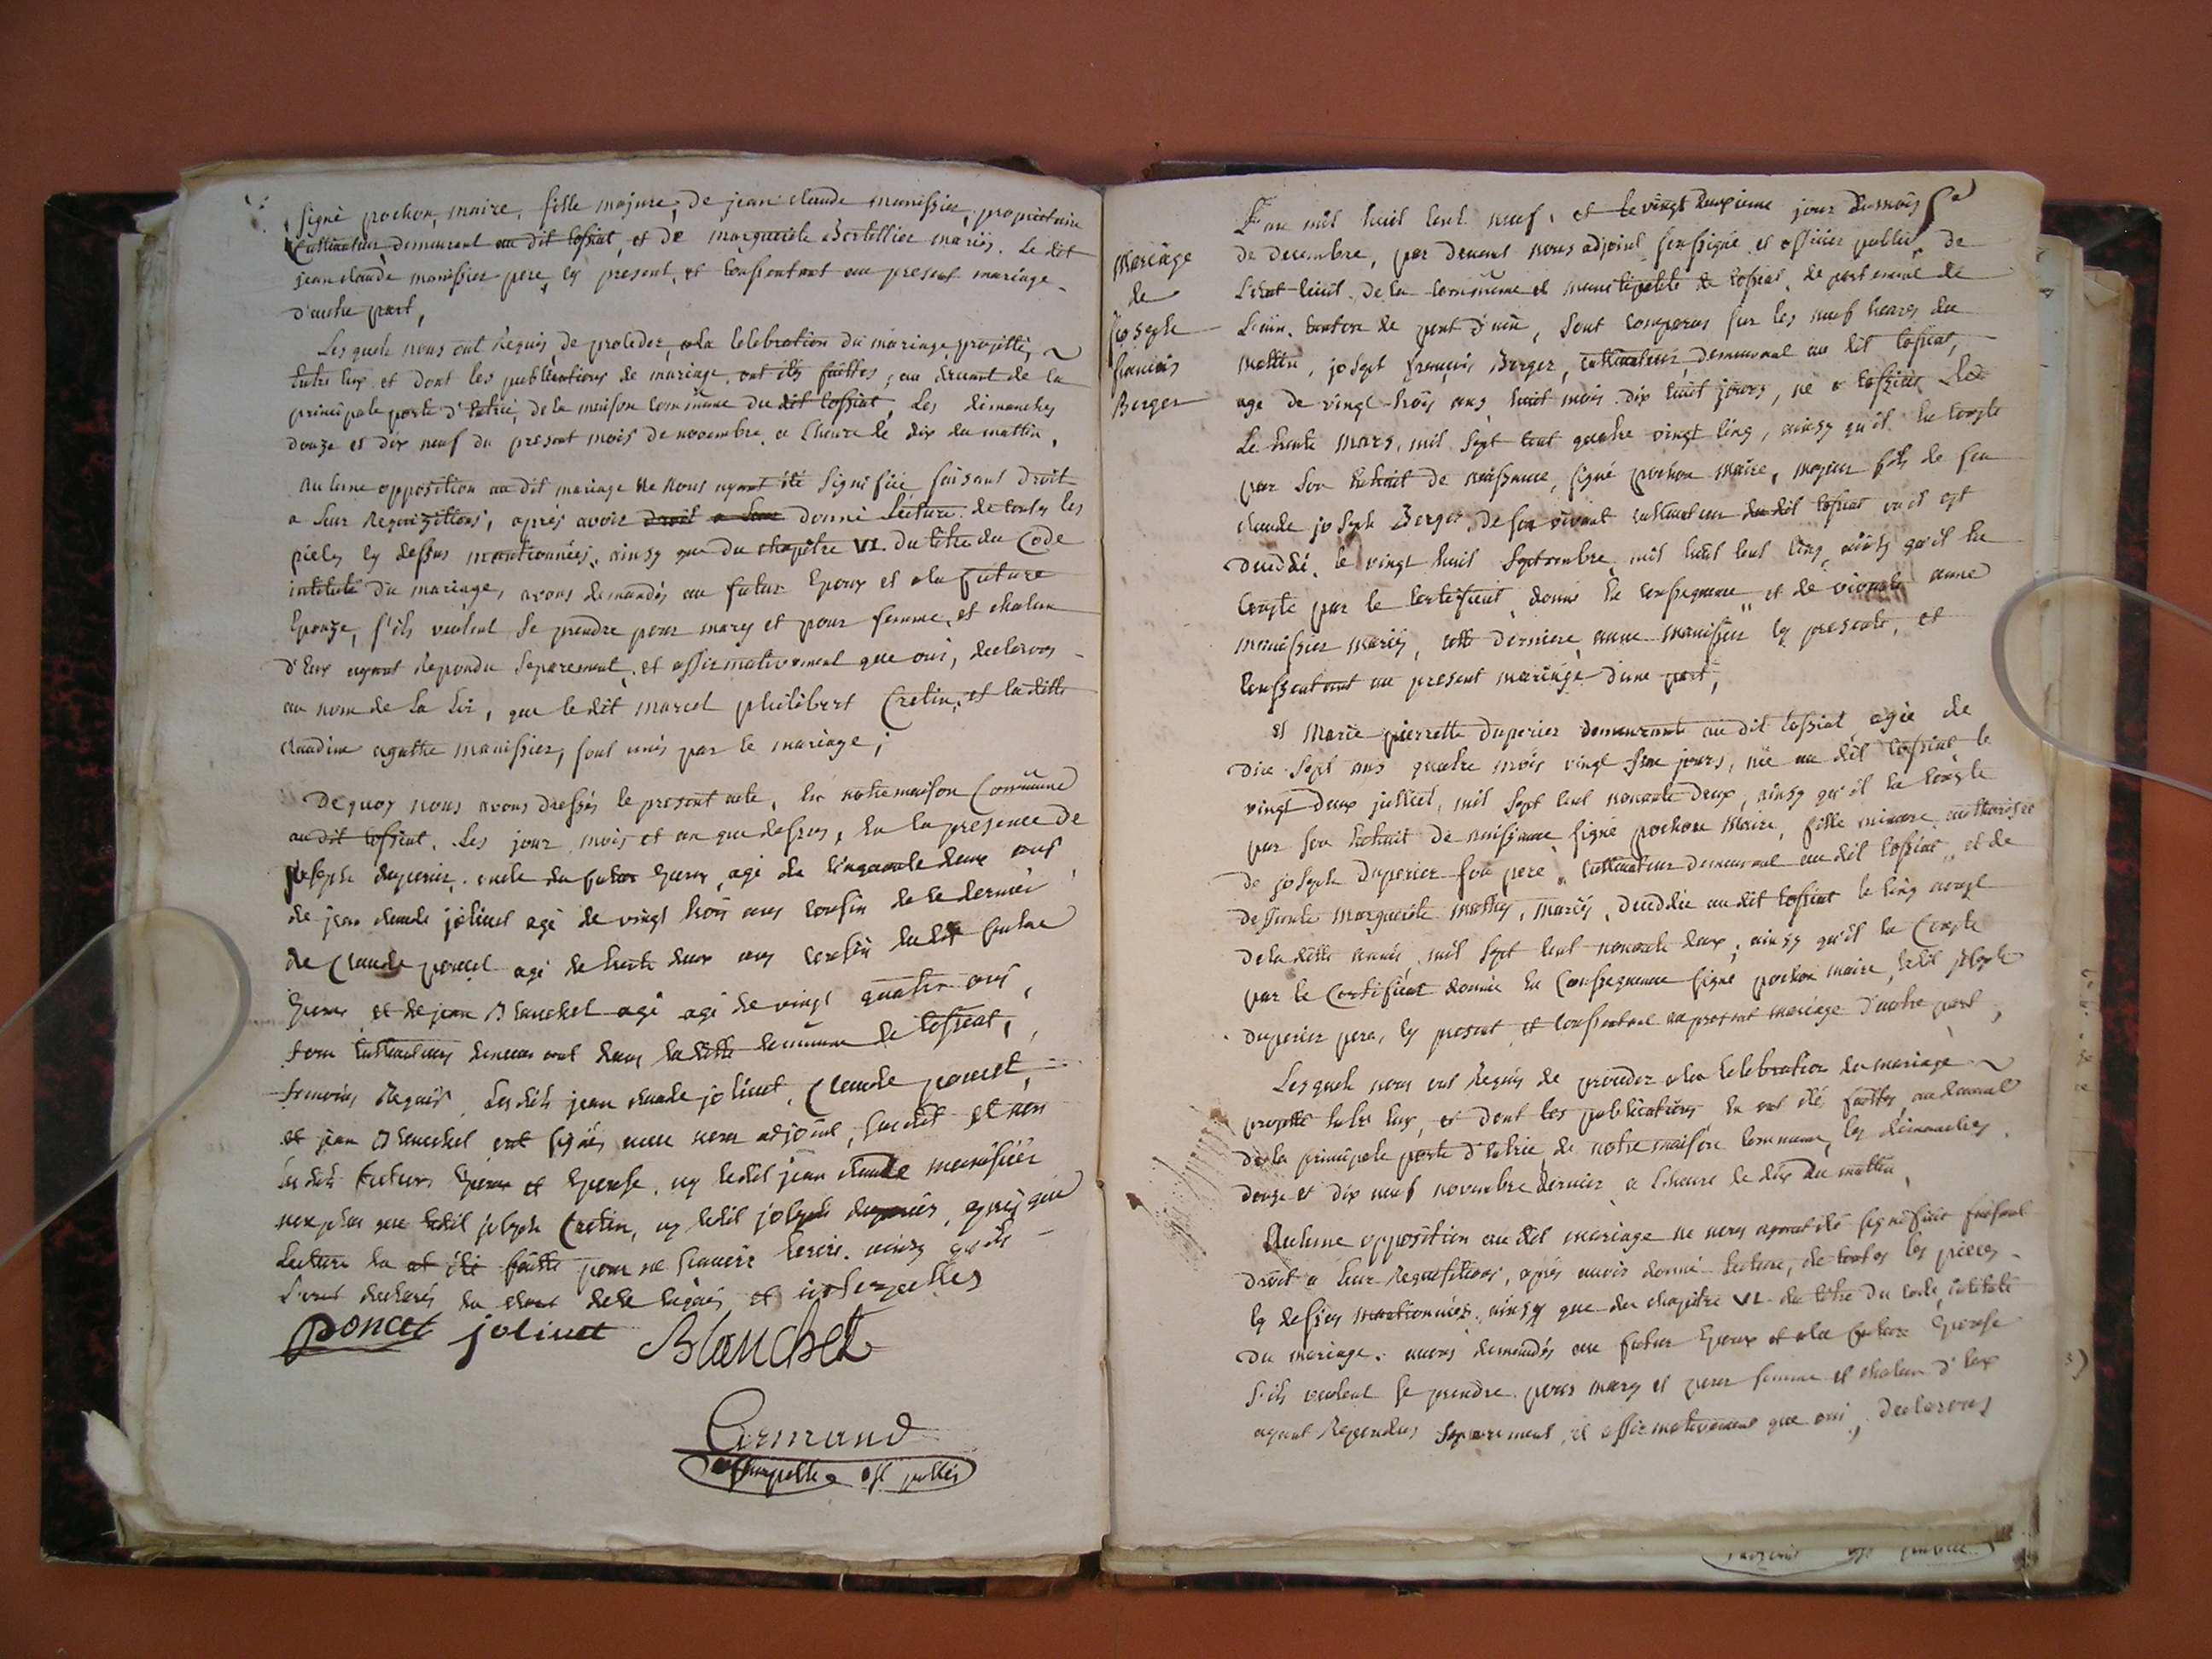 signé pochon, maire, fille majure, De jean claude manissier, propriétaire
Cultivateur demeurant au dit Cossiat, et De marguerite Bertellier mariés. Le dit
jean claude manissier pere, cy present, et Conssentant au present mariage
D'autre part,
Lesquels nous ont Requis, de proceder, a la Celebration du mariage projetté,
Entre Eux, et dont les publications de mariage, ont étés faittes, au devant de la
principale porte d'Entrée, de la maison Commune du dit Cossiat, Les dimanches
douze et dix neuf du present mois de novembre, a Lheure de dix du mattin,
Aucune opposition au dit mariage Ne Nous ayant été Signifiée faisant Droit
a Leur Requizitions, après avoir droit a Leur donné Lecture de toutes les
pieces cy dessus mentionnées, ainsy que du chapitre VI. Du titre du Code
intitulé Du mariage, avons demandés au futur Epoux et a la future
Epouze, s'ils veulent Se prendre pour mary et pour femme, et chacun
d'Eux ayant Repondu Separement, et affirmativement que oui, declarons
au nom de La Loi, que le dit marcel philibert Cretin, et la ditte
claudine agathe manissier, sont unis par le mariage;
De quoy nous avons Dressés le present acte, En notre maison Commune
au dit Cossiat, Les jour, mois et an que dessus, En la presence De
joseph duperier, oncle du futur Epoux, agé de Cinquante deux ans
de jean claude jolivet agé de vingt trois ans Cousin de ce dernier
de Claude poncet agé de trente deux ans Cousin du dit futur
Epoux et de jean Blanchet agé agé de vingt quatre ans,
tous Cultivateurs demeurant dans la ditte Commune de Cossiat,
temoins Requis, Lesdits jean claude jolivet, Claude poncet,
et jean Blanchet ont signés avec nous adjoint, Susdit et non
les dits futurs Epoux et Epouse, ny ledit jean claude manissier
non plus que ledit joseph Cretin, ny ledit joseph duperier, après que
Lecture En at été faitte pour ne Scavoir Ecrire, ainsy qu'ils
L'ont declarés En étant de ce Requis et interpellés
poncet jolivet Blanchet
Armand
Mariage
de
joseph
francois
Berger
L'an mil huit Cent neuf, et Le vingt deuxieme jour du mois
de decembre, par devant nous adjoint soussigné et officier public, de
L'état Civil, De la Commune et municipalité de Cossiat, de partement de
L'ain, Canton de pont d'ain, sont Comparus sur les neuf heures du
mattin, joseph françois Berger, Cultivateur, demeurant au dit Cossiat,
agé de vingt-trois ans, huit mois dix huit jours, né a Cossiat
Le trente mars, mil Sept Cent quatre vingt Cinq, ainsy qu'il En Conste
par son Extrait De naissance, signé pochon maire, majeur fils de feu
claude joseph Berger, de son vivant Cultivateur du dit Cossiat ou il est
Dueddé, le vingt huit Septembre mil huit Cent Cinq ainsy qu'il En
Conste par le Certificat, donné En Consequence, et de vivante anne
manissier mariés, cette derniere anne manissier cy presente, et
Conssentant au present mariage d'une part,
et Marie pierrette Duperier demeurante au dit Cossiat agée de
dix Sept ans quatre mois vingt jours, née au dit Cossiat le
vingt deux juillet, mil Sept Cent nonante deux, ainsy qu'il En Conste
par son Extrait De naissance signé pochon Maire, fille mineure authorisée
de joseph Duperier son pere, Cultivateur demeurant au dit Cossiat, et de
deffunte marguerite mathy, mariés, Dueddée au dit Cossiat le Cinq
De la ditte année, mil Sept Cent nonante deux, ainsy qu'il En Conste
par le Certificat donnée En Conssequence signé pochon maire, ledit joseph
Duperier pere, cy present et Conssentant au present mariage D'autre part,
Lesquels nous ont Requis de proceder a la Celebration du mariage
projetté Entre Eux, et dont les publications En ont été faittes au devant
de la principale porte d'Entrée, de notre maison Commune, les dimanches
douze et dix neuf novembre dernier, a L'heure de dix du mattin,
Aucune opposition au dit mariage ne nous ayant été signifiée faisant
Droit a Leur Requisitions, après avoir donné Lecture, de toutes les pieces
cy dessus mentionnées, ainsy que du chapitre VI. du titre Du Code, intitulé
Du mariage, avons demandés au futur Epoux et a la future Epouse
s'ils veulent se prendre pour mary et pour femme et chacun d'Eux
ayant Repondus Separement, et affirmativement que oui, declarons